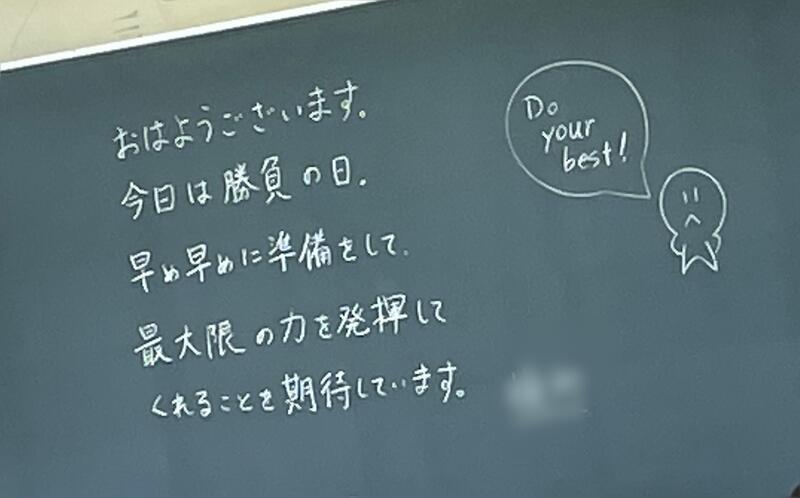 おはようございます。
今日は勝負の日。
早め早めに準備をして、
最大限の力を発揮して
くれることを期待しています。
Do
your
best!